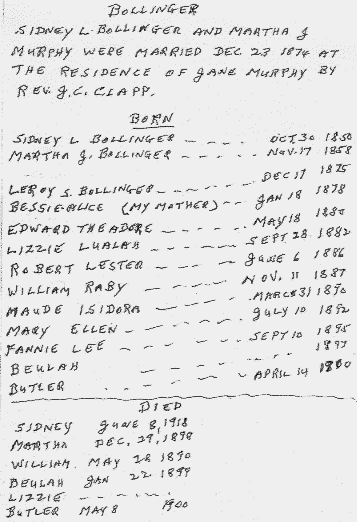 BOLLINGER
SIDNEY L. BOLLINGER AND MARTHA J
MURPHY WERE MARRIED DEC 23 1874 AT
THE RESIDENCE OF JANE MURPHY BY
REV. J.C. CLAPP.
BORN
SIDNEY L BOLLINGER ---- OCT 30 1850
MARTHA J. BOLLINGER ---- NOV. 17 1858
LEROY S. BOLLINGER ---- DEC 17 1875
BESSIE-ALICE (MY MOTHER) -- JAN 18 1878
EDWARD THEADORE ---- MAY 18 1880
LIZZIE LUALAH ---- SEPT 28 1882
ROBERT LESTER ---- JUNE 6 1886
WILLIAM RABY ---- NOV. 11 1887
MAUDE ISIDORA ---- MARCH 31 1890
MARY ELLEN ---- JULY 10 1892
FANNIE LEE ---- SEPT 10 1895
BEULAH ---- 1897
BUTLER ---- APRIL 14 1900
DIED
SIDNEY JUNE 8, 1918
MARTHA DEC. 29, 1898
WILLIAM. MAY 28 1890
BEULAH JAN 22 1899
LIZZIE -----
BUTLER MAY 8 1900